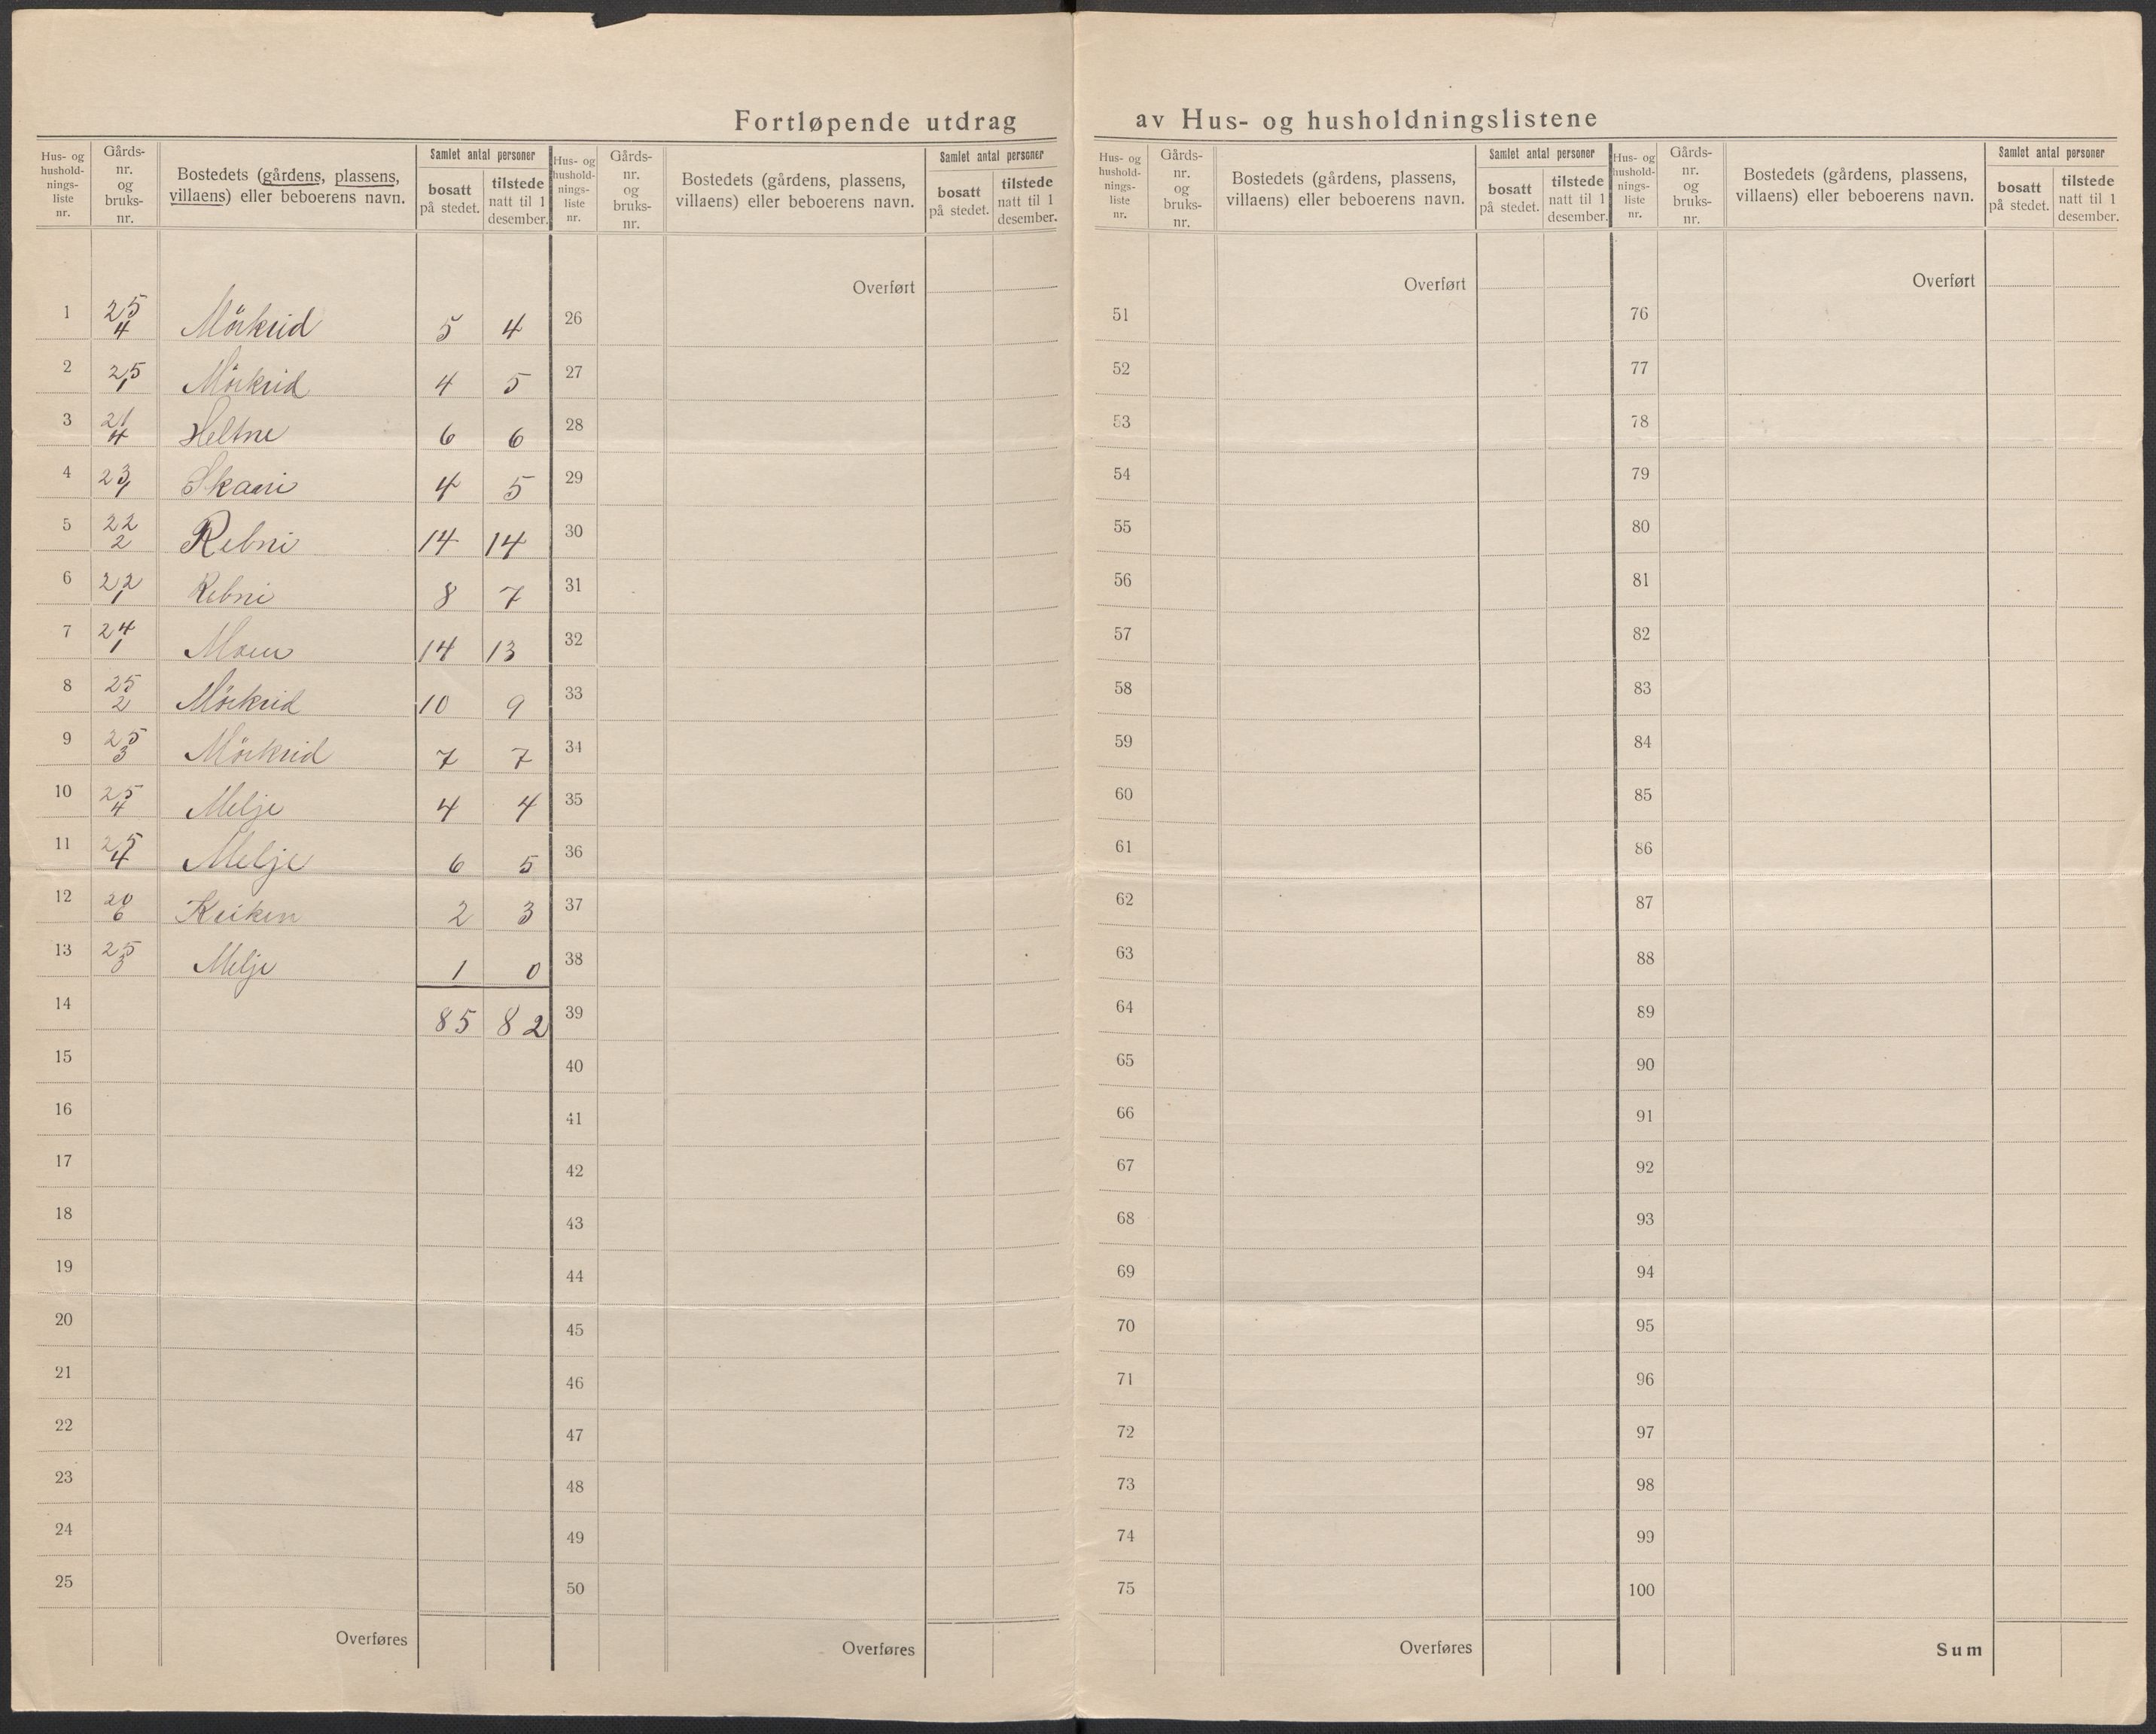 Fortløpende utdrag av Hus- og husholdningslistene
Hus- og hushold-nings-liste nr. Gårds-nr. og bruks-nr. Bostedets (gårdens, plassens, villaens) eller beboerens navn. Samlet antal personer bosatt på stedet. tilstede natt til 1 desember.
1 25/4 Mörkrid 5 4
2 25/1 Mörkrid 4 5
3 21/4 Heltne 6 6
4 23/1 Skaari 4 5
5 22/2 Rebni 14 14
6 22/1 Rebni 8 7
7 24/1 Moen 14 13
8 25/2 Mörkrid 10 9
9 25/3 Mörkrid 7 7
10 25/4 Melje 4 4
11 25/4 Melje 6 5
12 20/6 Kriken 2 3
13 25/3 Melje 1 0
14 85 82
15
16
17
18
19
20
21
22
23
24
25
Overføres
Hus- og hushold-nings-liste nr. Gårds-nr. og bruks-nr. Bostedets (gårdens, plassens, villaens) eller beboerens navn. Samlet antal personer bosatt på stedet. tilstede natt til 1 desember.
Overført
26
27
28
29
30
31
32
33
34
35
36
37
38
39
40
41
42
43
44
45
46
47
48
49
50
Overføres
Hus- og hushold-nings-liste nr. Gårds-nr. og bruks-nr. Bostedets (gårdens, plassens, villaens) eller beboerens navn. Samlet antal personer bosatt på stedet. tilstede natt til 1 desember.
Overført
51
52
53
54
55
56
57
58
59
60
61
62
63
64
65
66
67
68
69
70
71
72
73
74
75
Overføres
Hus- og hushold-nings-liste nr. Gårds-nr. og bruks-nr. Bostedets (gårdens, plassens, villaens) eller beboerens navn. Samlet antal personer bosatt på stedet. tilstede natt til 1 desember.
Overført
76
77
78
79
80
81
82
83
84
85
86
87
88
89
90
91
92
93
94
95
96
97
98
99
100
Sum